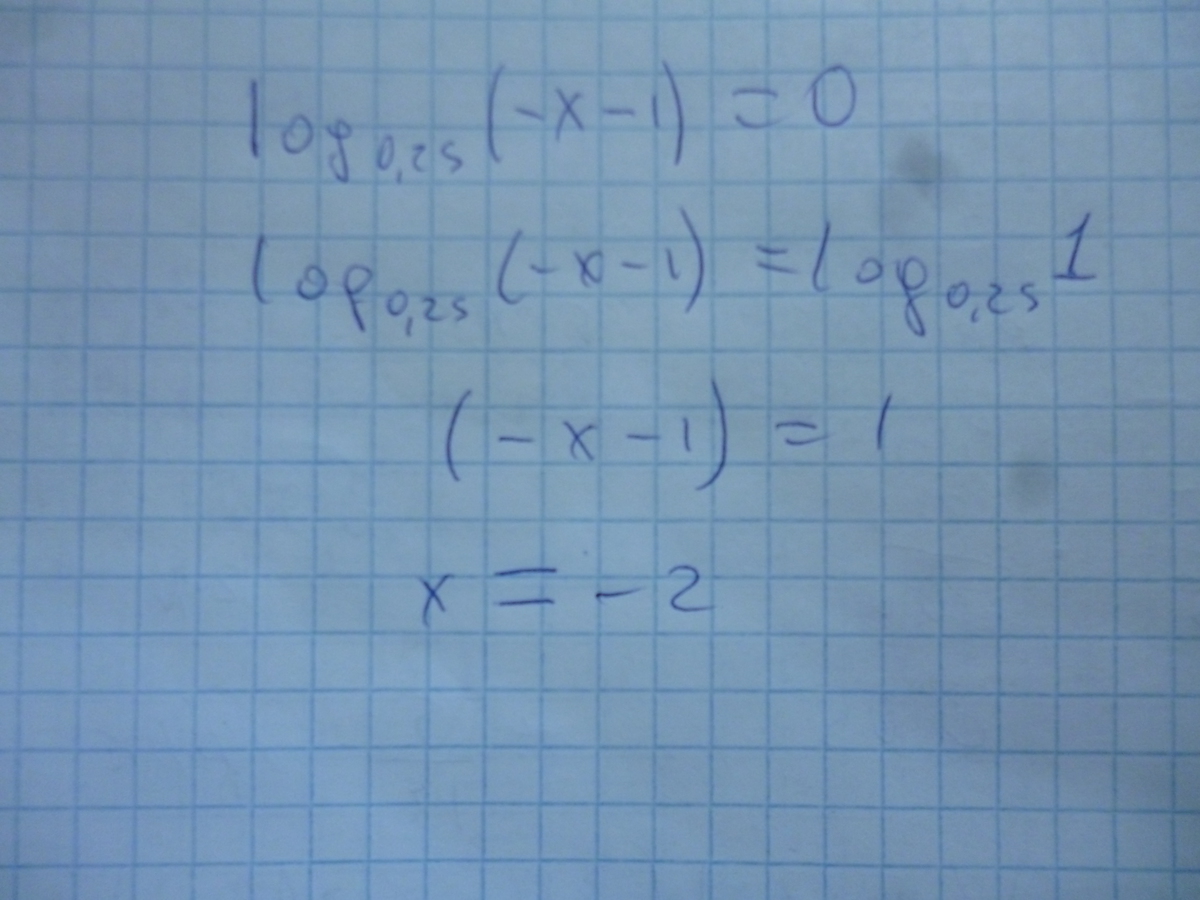 log₀,₂₅ (-x-1) = 0
log₀,₂₅ (-x-1) = log₀,₂₅ 1
(-x-1) = 1
x = -2